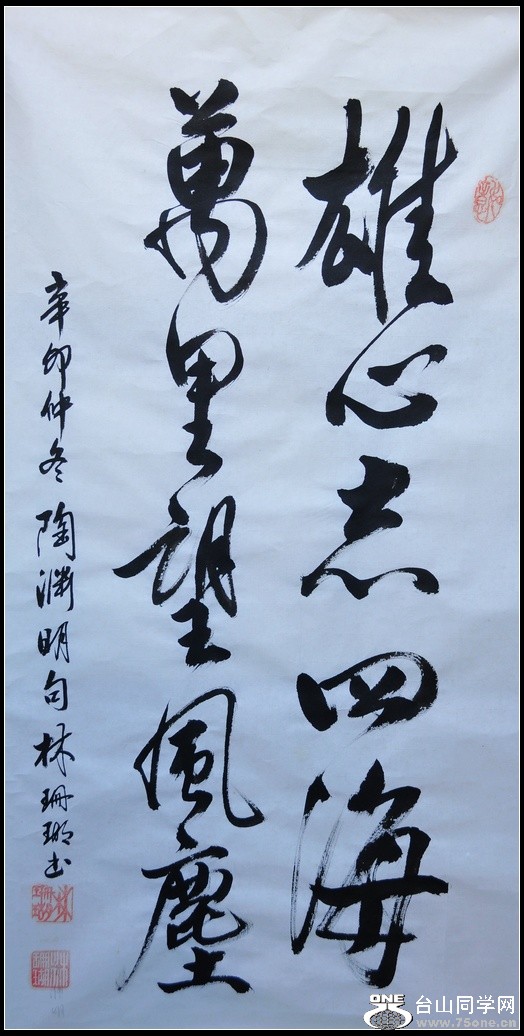 雄心志四海
萬里望風塵
辛卯仲冬 陶渊明句 林珊瑚书
ONE
台山同学网
www.75one.cn